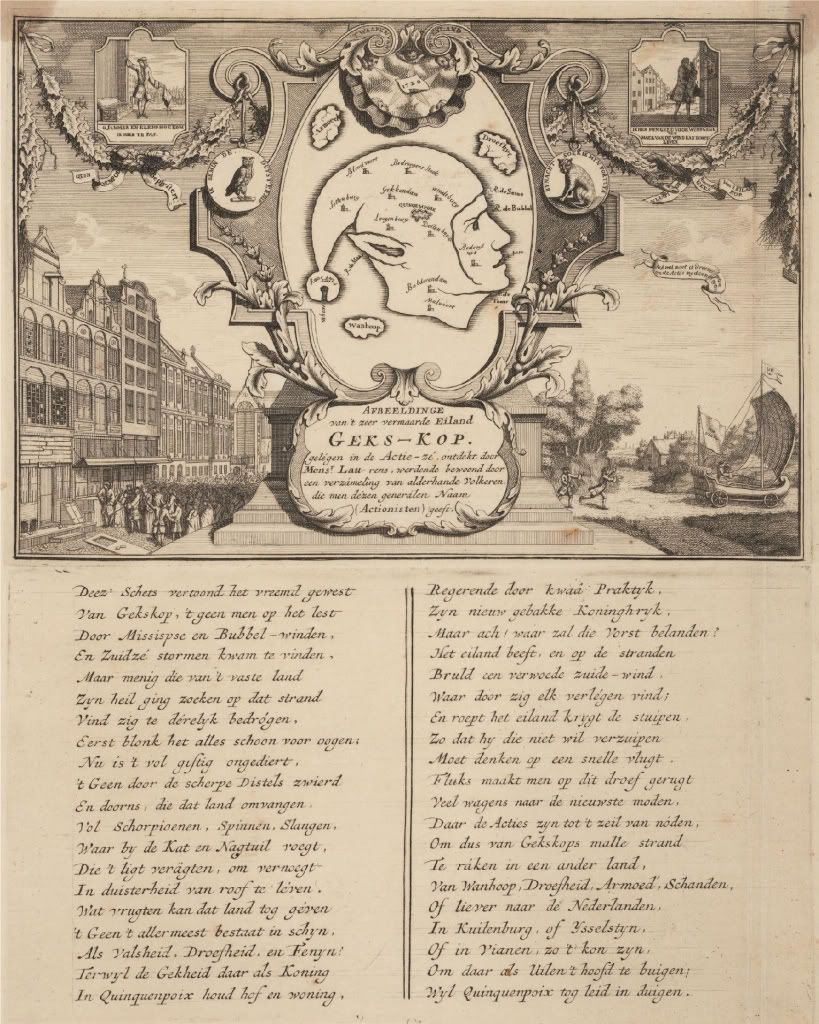 1720
IK MIN DE DUISTERNIS
Armoed
Droefheid
Bloed meer
Bedriegers Stad
R. de Seine
R. de Bubbel
QUINQUENPOIX
Wanhoop
AFBEELDINGE
van 't zeer vermaarde Eiland
GEKS-KOP.
gelégen in de Actie-zé, ontdekt door
Mons.r Lau-rens, werdende bewoond door
een verzameling van alderhande Volkeren
die men dézen generalen Naam
(Actionisten) geeft.
Deez' Schets vertoond het vreemd gewest
Van Gekskop, 't geen men op het lest
Door Missispse en Bubbel-winden,
En Zuidzé stormen kwam te vinden,
Maar menig die van 't vaste land
Zyn heil ging zoeken op dat strand
Vind zig te dérelyk bedrógen,
Eerst blonk het alles schoon voor oogen;
Nu is 't vol giftig ongediert,
't Geen door de scherpe Distels zwierd
En doorns, die dat land omvangen,
Vol Schorpioenen, Spinnen, Slangen,
Waar by de Kat en Nagtuil voegt,
Die 't ligt verägten, om vernoegt
In duisterheid van roof te léven.
Wat vrugten kan dat land tog géven
't Geen 't allermeest bestaat in schyn,
Als Valsheid, Droefheid, en Fenyn?
Terwyl de Gekheid daar als Koning
In Quinquenpoix houd hof en woning,
Regerende door kwaâ Praktyk,
Zyn nieuw gebakke Koninghryk,
Maar ach! waar zal die Vorst belanden?
Het eiland beeft, en op de stranden
Bruld een verwoede zuide-wind,
Waar door zig elk verlégen vind;
En roept het eiland krygt de stuipen,
Zo dat hy die niet wil verzuipen
Moet denken op een snelle vlugt.
Fluks maakt men op dit droef gerugt
Veel wagens naar de nieuwste moden,
Daar de Acties zyn tot 't zeil van nóden,
Om dus van Gekskops malle strand
Te ráken in een ander land,
Van Wanhoop, Droefheid, Armoed, Schanden,
Of liever naar dé Nederlanden,
In Kuilenburg, of Ysselstyn,
Of in Vianen, zo 't kon zyn,
Om daar als Uilen 't hoofd te buigen;
Wyl Quinquenpoix tog leid in duigen.